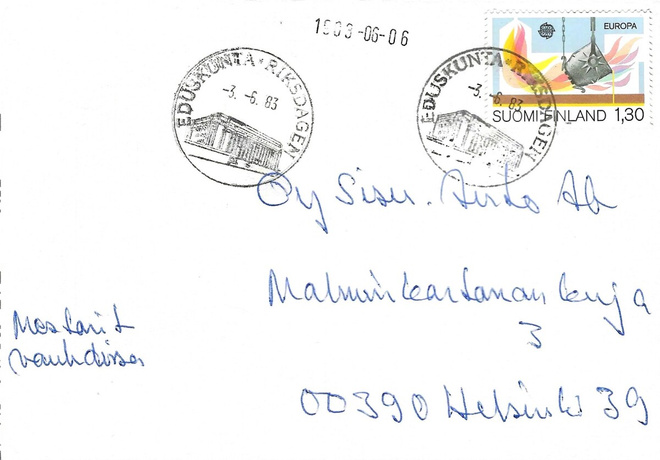 1983-06-06
EUROPA
SUOMI FINLAND 1,30
EDUSKUNTA * RIKSDAGEN
-3. -6. 83
EDUSKUNTA * RIKSDAGEN
-3. -6. 83
Oy Ab
Malminkartanonkuja
3
00390 Helsinki 39
Mestarit
vauhdissa